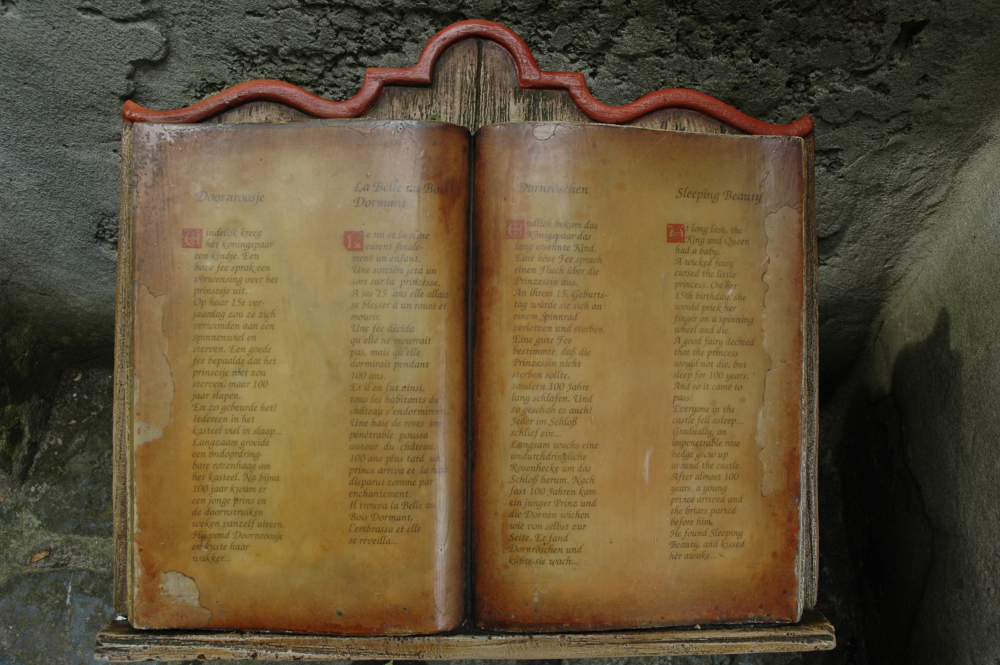 Doornroosje
Eindelijk kreeg
het koningspaar
een kindje. Een
boze fee sprak een
verwensing over het
prinsesje uit.
Op haar 15e ver-
jaardag zou ze zich
verwonden aan een
spinnewiel en
sterven. Een goede
fee bepaalde dat het
prinsesje niet zou
sterven, maar 100
jaar slapen.
En zo gebeurde het!
Iedereen in het
kasteel viel in slaap...
Langzaam groeide
een ondoordring-
bare rozenhaag om
het kasteel. Na bijna
100 jaar kwam er
een jonge prins en
de doornstruiken
weken vanzelf uiteen.
Hij vond Doornroosje
en kuste haar
wakker...
La Belle au Bois
Dormant
Le roi et la reine
eurent finale-
ment un enfant.
Une sorcière jeta un
sort sur la princesse.
A ses 15 ans elle allait
se blesser à un rouet et
mourir.
Une fée décida
qu'elle ne mourrait
pas, mais qu'elle
dormirait pendant
100 ans.
Et il en fut ainsi,
tous les habitants du
château s'endormirent
Une haie de roses im
pénétrable poussa
autour du château.
100 ans plus tard un
prince arriva et la haie
disparut comme par
enchantement.
Il trouva la Belle au
Bois Dormant,
l'embrassa et elle
se réveilla...
Dornröschen
Endlich bekam das
Königspaar das
lang ersehnte Kind.
Eine böse Fee sprach
einen Fluch über die
Prinzessin aus.
An ihrem 15. Geburts-
tag würde sie sich an
einem Spinnrad
verletzen und sterben.
Eine gute Fee
bestimmte, daß die
Prinzessin nicht
sterben sollte,
sondern 100 Jahre
lang schlafen. Und
so geschah es auch!
Jeder im Schloß
schlief ein...
Langsam wuchs eine
undurchdringliche
Rosenhecke um das
Schloß herum. Nach
fast 100 Jahren kam
ein junger Prinz und
die Dornen wichen
wie von selbst zur
Seite. Er fand
Dornröschen und
küßte sie wach...
Sleeping Beauty
At long last, the
King and Queen
had a baby.
A wicked fairy
cursed the little
princess. On her
15th birthday, she
would prick her
finger on a spinning
wheel and die.
A good fairy decreed
that the princess
would not die, but
sleep for 100 years.
And so it came to
pass!
Everyone in the
castle fell asleep...
Gradually, an
impenetrable rose
hedge grew up
around the castle.
After almost 100
years, a young
prince arrived and
the briars parted
before him.
He found Sleeping
Beauty, and kissed
her awake...